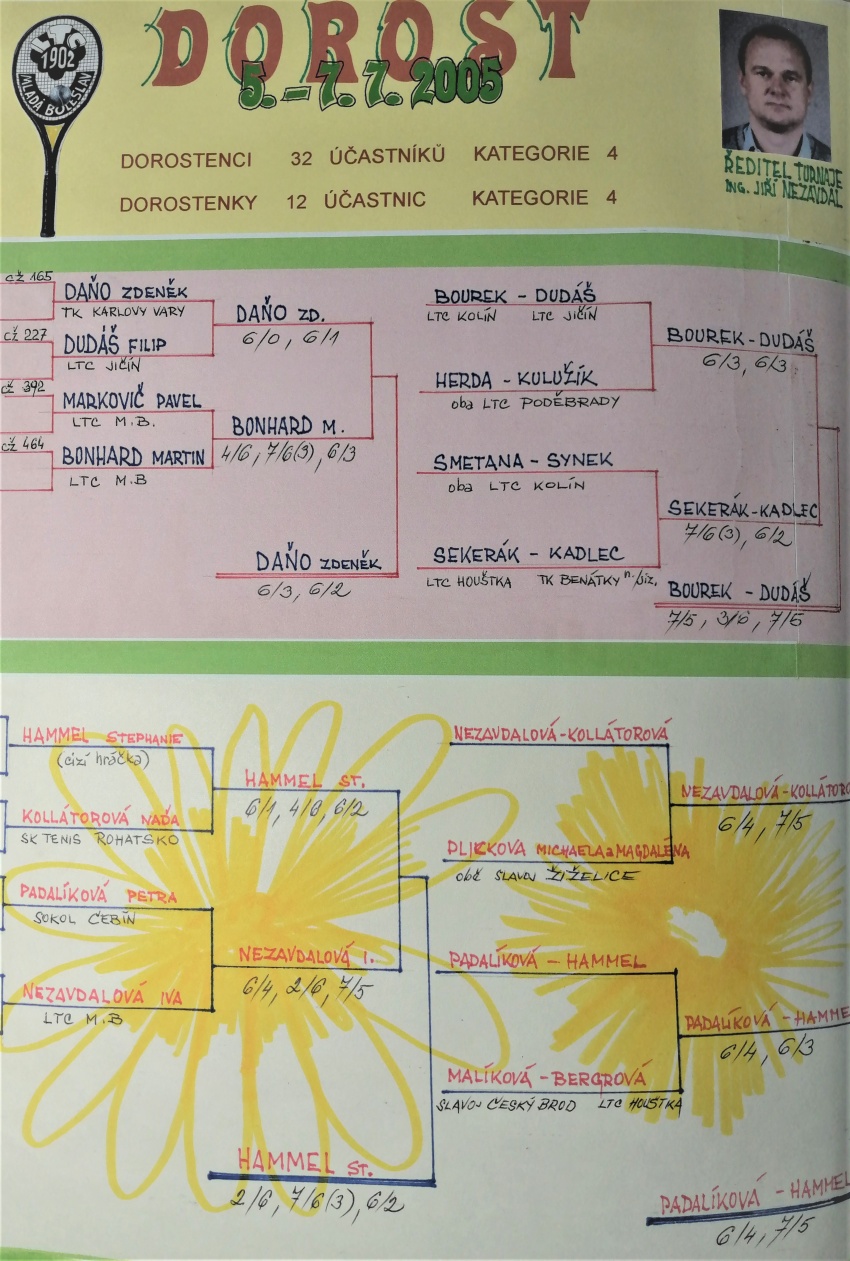 LTC
1902
MLADÁ BOLESLAV
DOROST
5. - 7. 7. 2005
DOROSTENCI 32 ÚČASTNÍKŮ KATEGORIE 4
DOROSTENKY 12 ÚČASTNIC KATEGORIE 4
ŘEDITEL TURNAJE
ING. JIŘÍ NEZAVDAL
CŽ 165
DAŇO ZDENĚK
TK KARLOVY VARY
CŽ 227
DUDÁŠ FILIP
LTC JIČÍN
CŽ 392
MARKOVIČ PAVEL
LTC M.B.
CŽ 464
BONHARD MARTIN
LTC M.B
DAŇO ZD.
6/0, 6/1
BONHARD M.
4/6, 7/6(3), 6/3
DAŇO ZDENĚK
6/3, 6/2
BOUREK - DUDÁŠ
LTC KOLÍN LTC JIČÍN
HERDA - KULUŽÍK
oba LTC PODĚBRADY
SMETANA - SYNEK
oba LTC KOLÍN
SEKERÁK - KADLEC
LTC HOUŠTKA TK BENÁTKY n./Jiz.
BOUREK - DUDÁŠ
6/3, 6/3
SEKERÁK - KADLEC
7/6(3), 6/2
BOUREK - DUDÁŠ
7/5, 3/6, 7/5
HAMMEL STEPHANIE
(cizí hráčka)
KOLLÁTOROVÁ NAĎA
SK TENIS ROHATSKO
PADALÍKOVÁ PETRA
SOKOL ČEBÍN
NEZAVDALOVÁ IVA
LTC M.B
HAMMEL ST.
6/1, 4/6, 6/2
NEZAVDALOVÁ I.
6/4, 2/6, 7/5
HAMMEL ST.
2/6, 7/6(3), 6/2
NEZAVDALOVÁ-KOLLÁTOROVÁ
PLICKOVA MICHAELA a MAGDALÉNA
obě SLAVOJ ŽIŽELICE
PADALÍKOVÁ - HAMMEL
MALÍKOVÁ - BERGROVÁ
SLAVOJ ČESKÝ BROD LTC HOUŠTKA
NEZAVDALOVÁ-KOLLÁTORO
6/4, 7/5
PADALÍKOVÁ - HAMME
6/4, 6/3
PADALÍKOVÁ - HAMMEL
6/4, 7/5